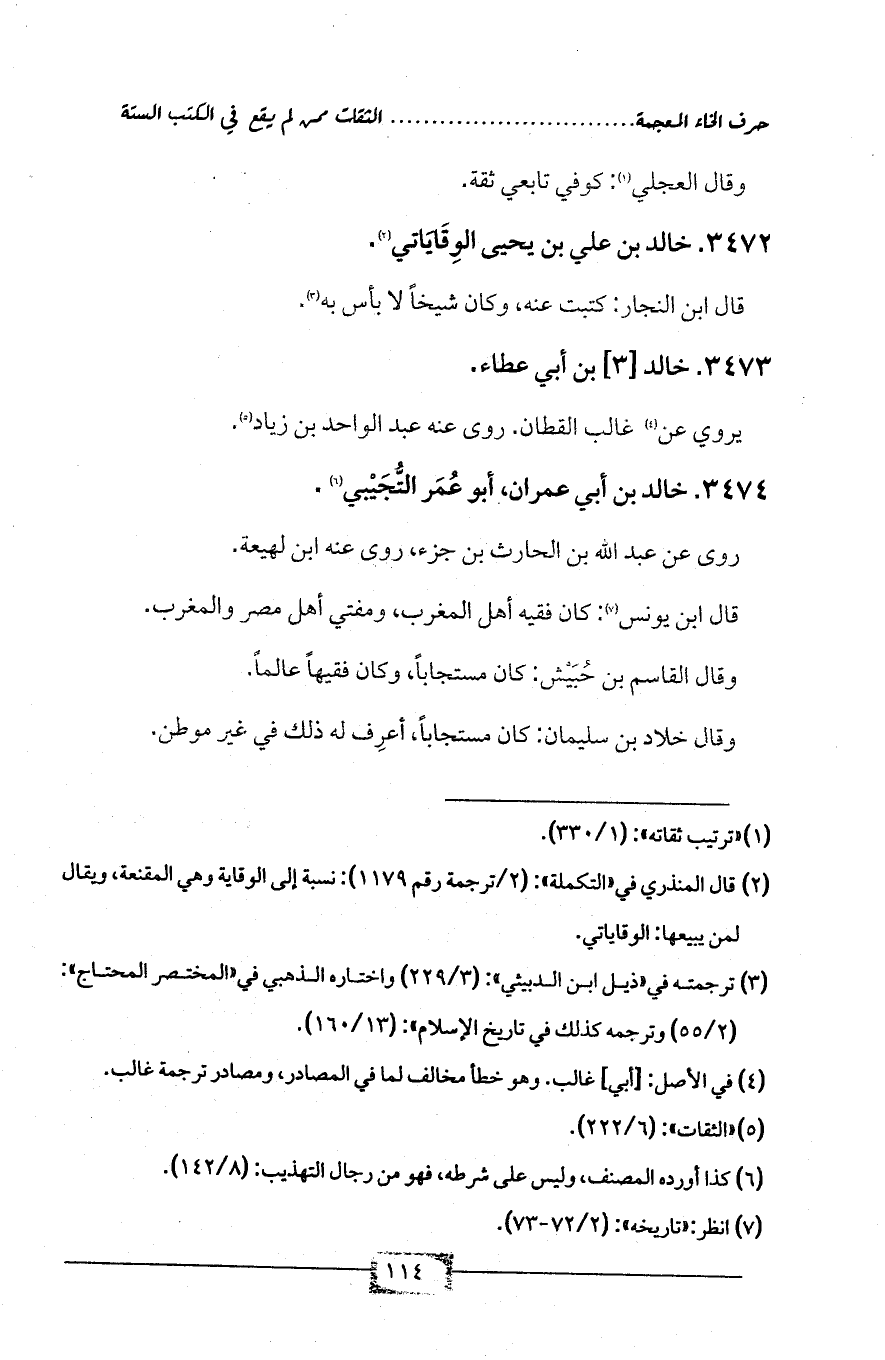 حرف الخاء المعجمة.............................. الثقات ممن لم يقع في الكتب الستة
وقال العجلي(١): كوفي تابعي ثقة.
٣٤٧٢. خالد بن علي بن يحيى الوِقَايَاتي(٢).
قال ابن النجار: كتبت عنه، وكان شيخاً لا بأس به(٣).
٣٤٧٣. خالد [٣] بن أبي عطاء.
يروي عن(٤) غالب القطان. روى عنه عبد الواحد بن زياد(٥).
٣٤٧٤. خالد بن أبي عمران، أبو عُمَر التُّجَيْبي(٦) .
روى عن عبد الله بن الحارث بن جزء، روى عنه ابن لهيعة.
قال ابن يونس(٧): كان فقيه أهل المغرب، ومفتي أهل مصر والمغرب.
وقال القاسم بن حُبَيْش: كان مستجاباً، وكان فقيهاً عالماً.
وقال خلاد بن سليمان: كان مستجاباً، أعرِف له ذلك في غير موطن.
(١) «ترتيب ثقاته»: (١/ ٣٣٠).
(٢) قال المنذري في «التكملة»: (٢/ ترجمة رقم ١١٧٩): نسبة إلى الوقاية وهي المقنعة، ويقال
لمن يبيعها: الوقاياتي.
(٣) ترجمته في «ذيل ابن الدبيثي»: (٣/ ٢٢٩) واختاره الذهبي في «المختصر المحتاج»:
(٢/ ٥٥) وترجمه كذلك في تاريخ الإسلام»: (١٣/ ١٦٠).
(٤) في الأصل: [أبي] غالب. وهو خطأ مخالف لما في المصادر، ومصادر ترجمة غالب.
(٥) «الثقات»: (٦/ ٢٢٢).
(٦) كذا أورده المصنف، وليس على شرطه، فهو من رجال التهذيب: (٨/ ١٤٢).
(٧) انظر: «تاريخه»: (٢/ ٧٢-٧٣).
١١٤